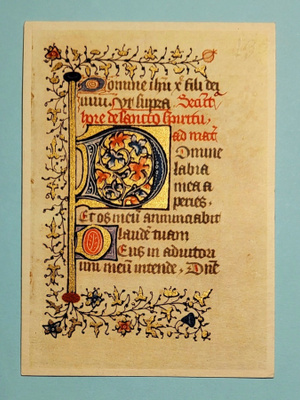 Domine ihu x fili dei
vivi. Ut supra Secūt
hore de sancto spiritu.
ad mat
Domine
labia
mea a
peries.
Et os meū annunciabit
laudē tuam
Deus in adiutori
um meū intende. Dnē